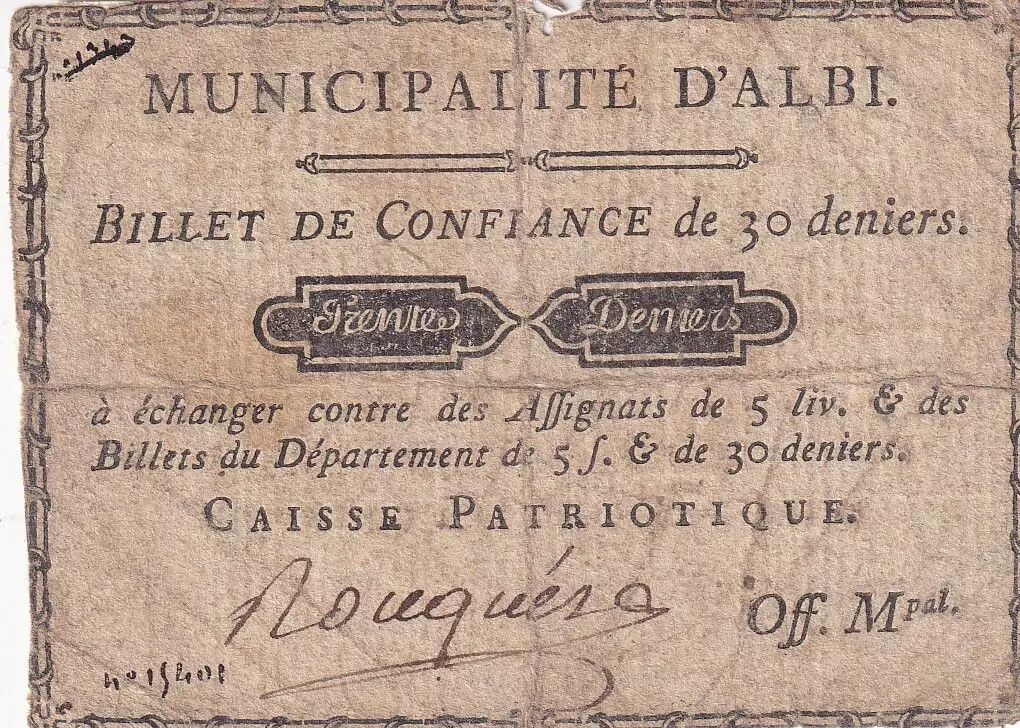 MUNICIPALITÉ D'ALBI.
BILLET DE CONFIANCE de 30 deniers.
Trente Deniers
à échanger contre des Aſſignats de 5 liv. & des
Billets du Département de 5 ſ. & de 30 deniers.
CAISSE PATRIOTIQUE.
Off. Mpal.
nº 15401